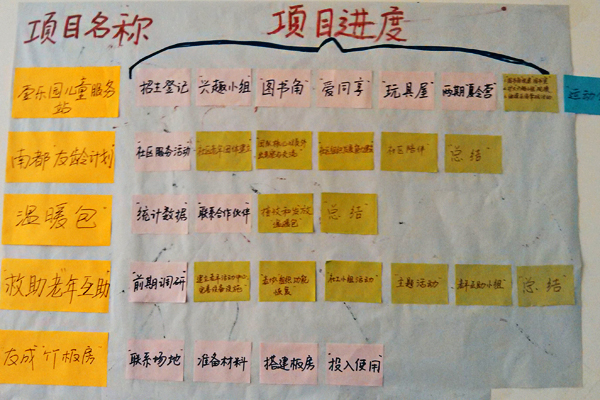 项目名称
项目进度
童乐园儿童服务站
招生登记
兴趣小组
图书角
爱同享
玩具屋
两期夏令营
运动
南都友龄计划
社区服务活动
社区陪伴
总结
温暖包
统计数据
联系合作伙伴
接收和发放温暖包
总结
救助老年互助
前期调研
社工小组活动
主题活动
老年互助小组
总结
友成竹板房
联系场地
准备材料
搭建板房
投入使用